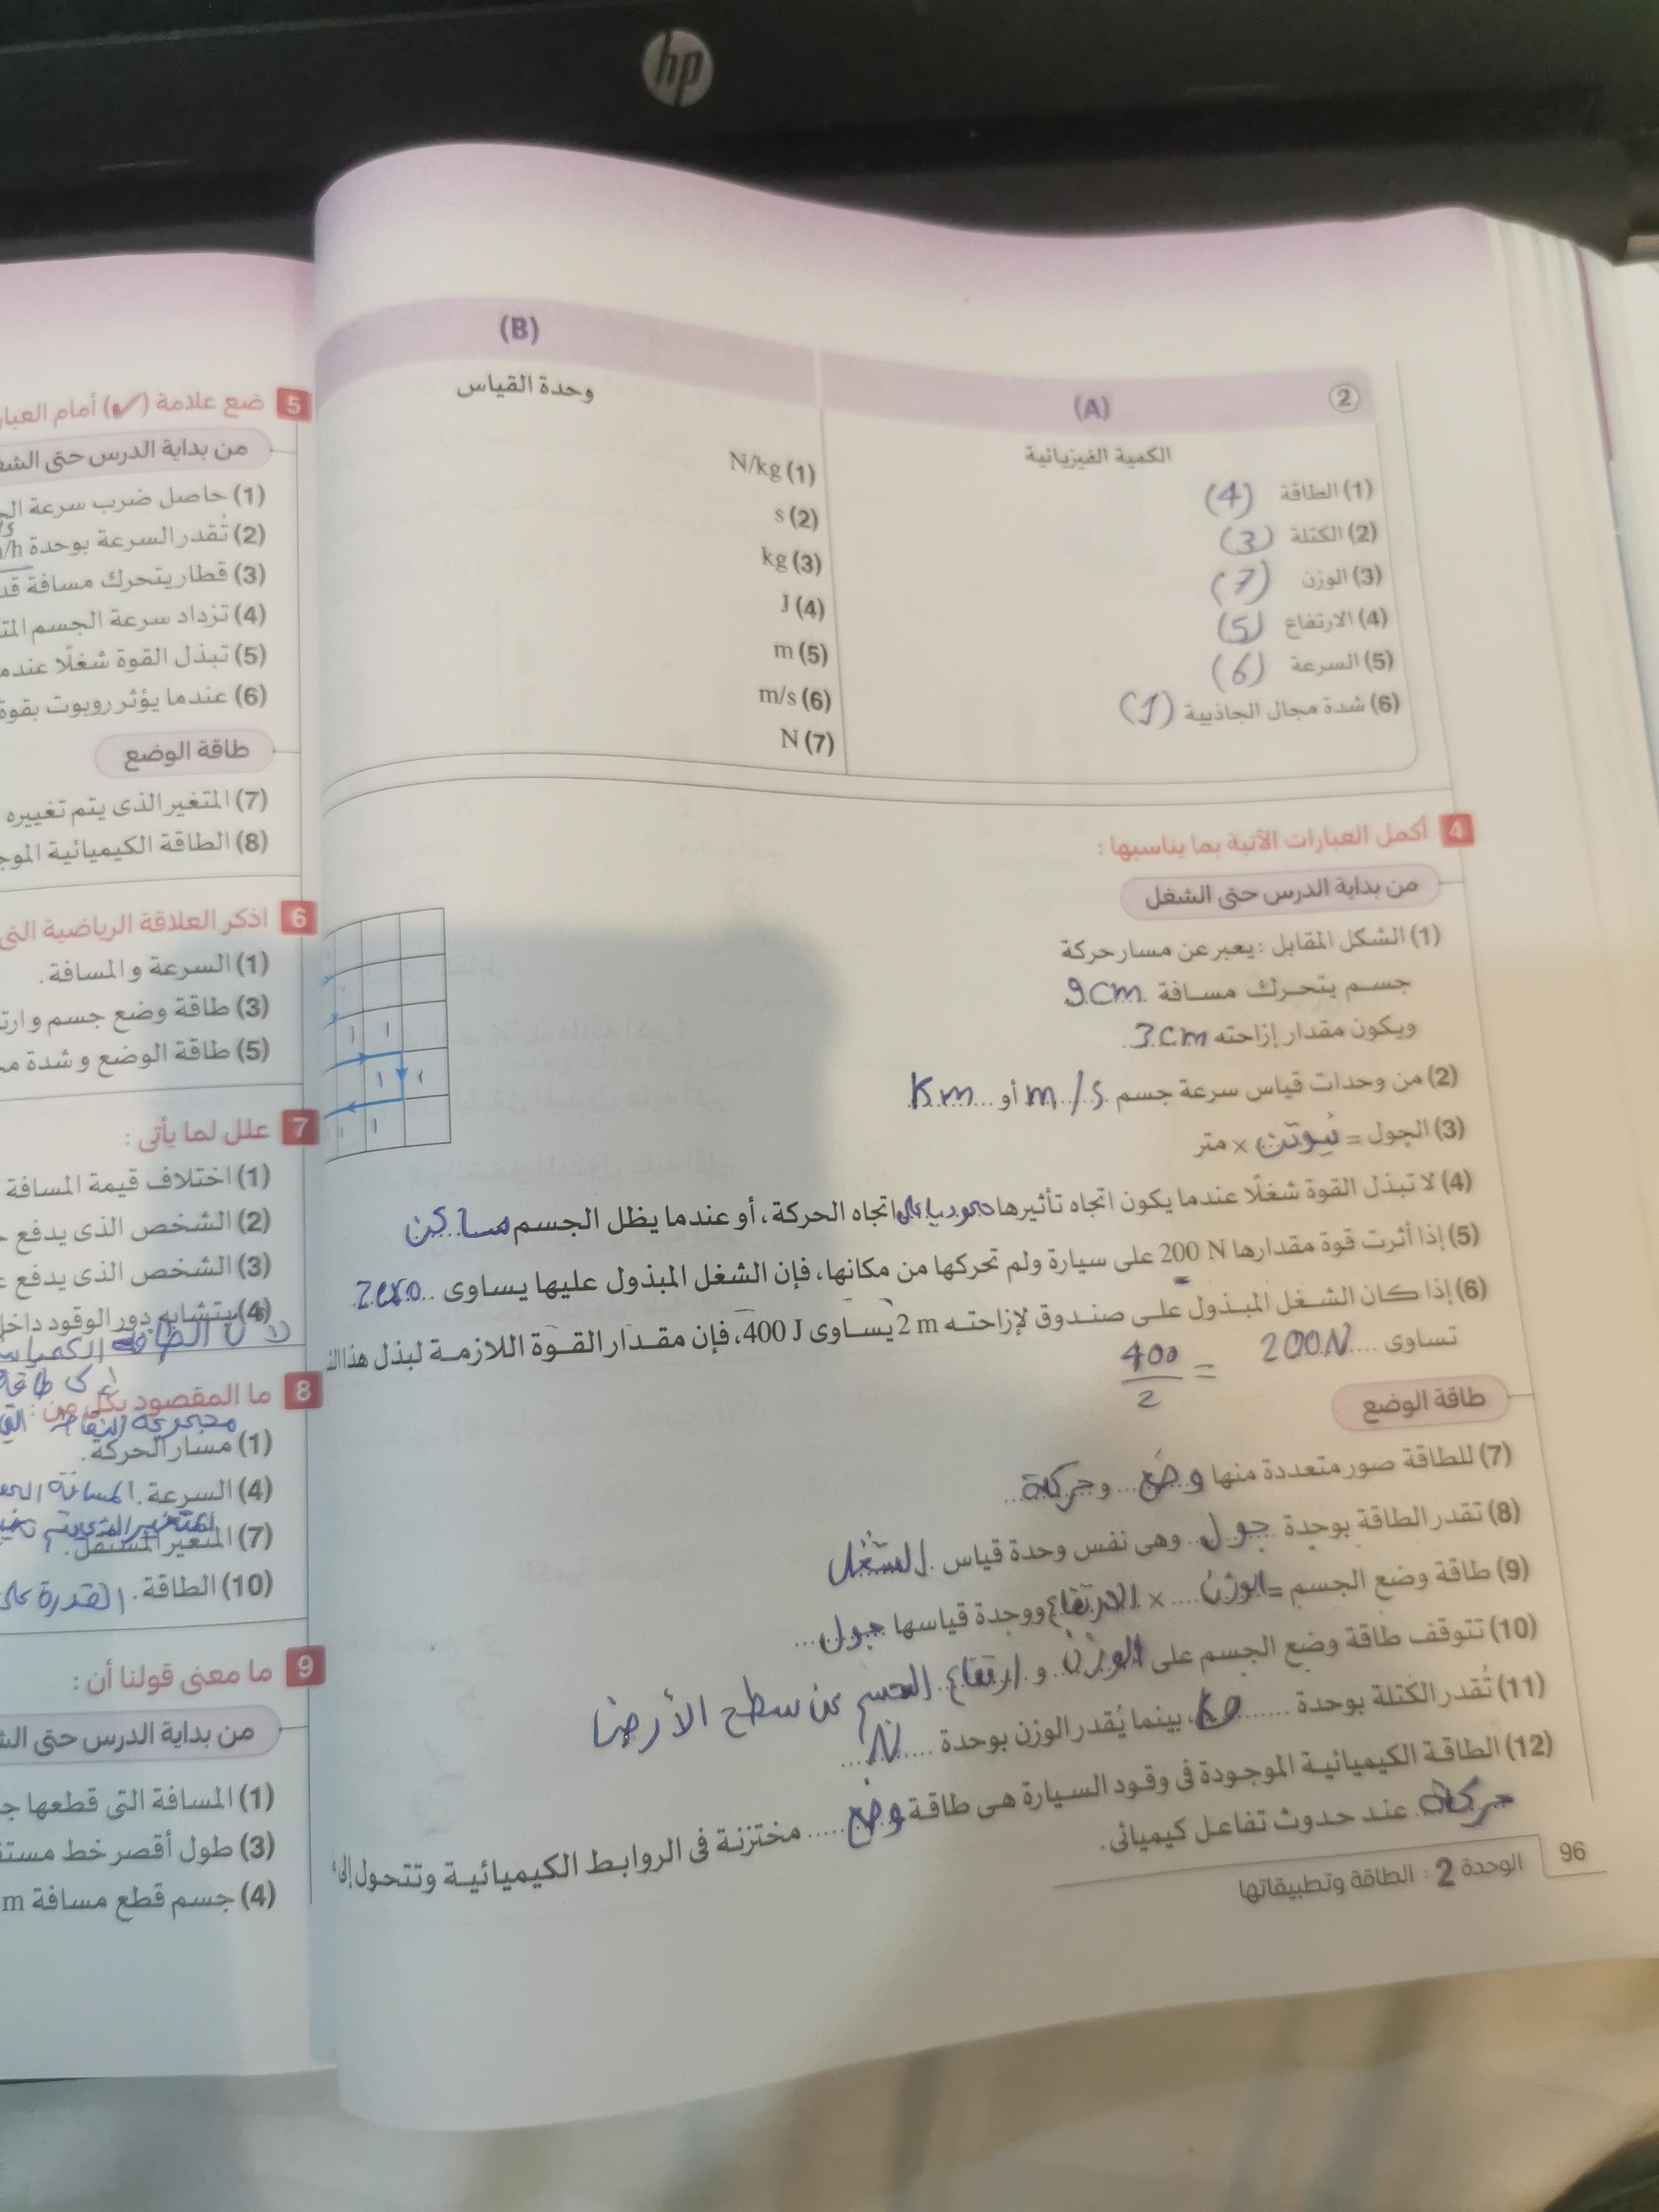 hp
(B)
وحدة القياس
(1) N/kg
(2) s
(3) kg
(4) J
(5) m
(6) m/s
(7) N
②
(A)
الكمية الفيزيائية
(1) الطاقة (4)
(2) الكتلة (3)
(3) الوزن (7)
(4) الارتفاع (5)
(5) السرعة (6)
(6) شدة مجال الجاذبية (1)
4 أكمل العبارات الآتية بما يناسبها :
من بداية الدرس حتى الشغل
(1) الشكل المقابل : يعبر عن مسار حركة
جسم يتحرك مسافة 9cm
ويكون مقدار إزاحته 3cm
(2) من وحدات قياس سرعة جسم m/s أو Km
(3) الجول = نيوتن × متر
(4) لا تبذل القوة شغلًا عندما يكون اتجاه تأثيرها عموديا على اتجاه الحركة، أو عندما يظل الجسم ساكن
(5) إذا أثرت قوة مقدارها 200 N على سيارة ولم تحركها من مكانها، فإن الشغل المبذول عليها يساوى zero
(6) إذا كان الشغل المبذول على صندوق لإزاحته 2 m يساوى 400 J، فإن مقدار القوة اللازمة لبذل هذا
تساوى 200N = 400/2
طاقة الوضع
(7) للطاقة صور متعددة منها وضع و حركة
(8) تقدر الطاقة بوحدة جول وهى نفس وحدة قياس الشغل
(9) طاقة وضع الجسم = الوزن × الارتفاع ووحدة قياسها جول
(10) تتوقف طاقة وضع الجسم على الوزن و ارتفاع الجسم عن سطح الأرض
(11) تُقدر الكتلة بوحدة ، بينما يُقدر الوزن بوحدة N
(12) الطاقة الكيميائية الموجودة فى وقود السيارة هى طاقة وضع مختزنة فى الروابط الكيميائية وتتحول إلى
حركة عند حدوث تفاعل كيميائى.
96 الوحدة 2 : الطاقة وتطبيقاتها
5 ضع علامة (✓) أمام
من بداية الدرس حتى
(1) حاصل ضرب سرعة
(2) تُقدر السرعة بوحدة
(3) قطار يتحرك مسافة
(4) تزداد سرعة الجسم
(5) تبذل القوة شغلًا
(6) عندما يؤثر روبوت بقوة
طاقة الوضع
(7) المتغير الذى يتم تغييره
(8) الطاقة الكيميائية
6 اذكر العلاقة الرياضية التى
(1) السرعة والمسافة.
(3) طاقة وضع جسم
(5) طاقة الوضع وشدة
7 علل لما يأتى :
(1) اختلاف قيمة المسافة
(2) الشخص الذى يدفع
(3) الشخص الذى يدفع
(4) يتشابه دور الوقود داخل
8 ما المقصود بكل من :
(1) مسار الحركة.
(4) السرعة. المسافة
(7) المتغير المستقل.
(10) الطاقة. القدرة على
9 ما معنى قولنا أن :
من بداية الدرس حتى
(1) المسافة التى قطعها
(3) طول أقصر خط
(4) جسم قطع مسافة m